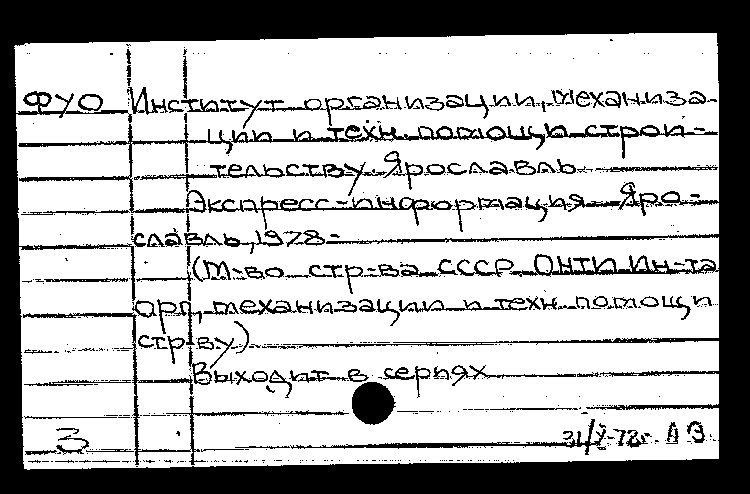 ФУО Институт организации, механиза-
ции и техн. помощи строи-
тельству. Ярославль
Экспресс-информация. Яро-
славль, 1978-
(М-во стр-ва СССР. ОНТИ Ин-та
орг., механизации и техн. помощи
стр-ву).
Выходит в сериях
3 31/X-78г.